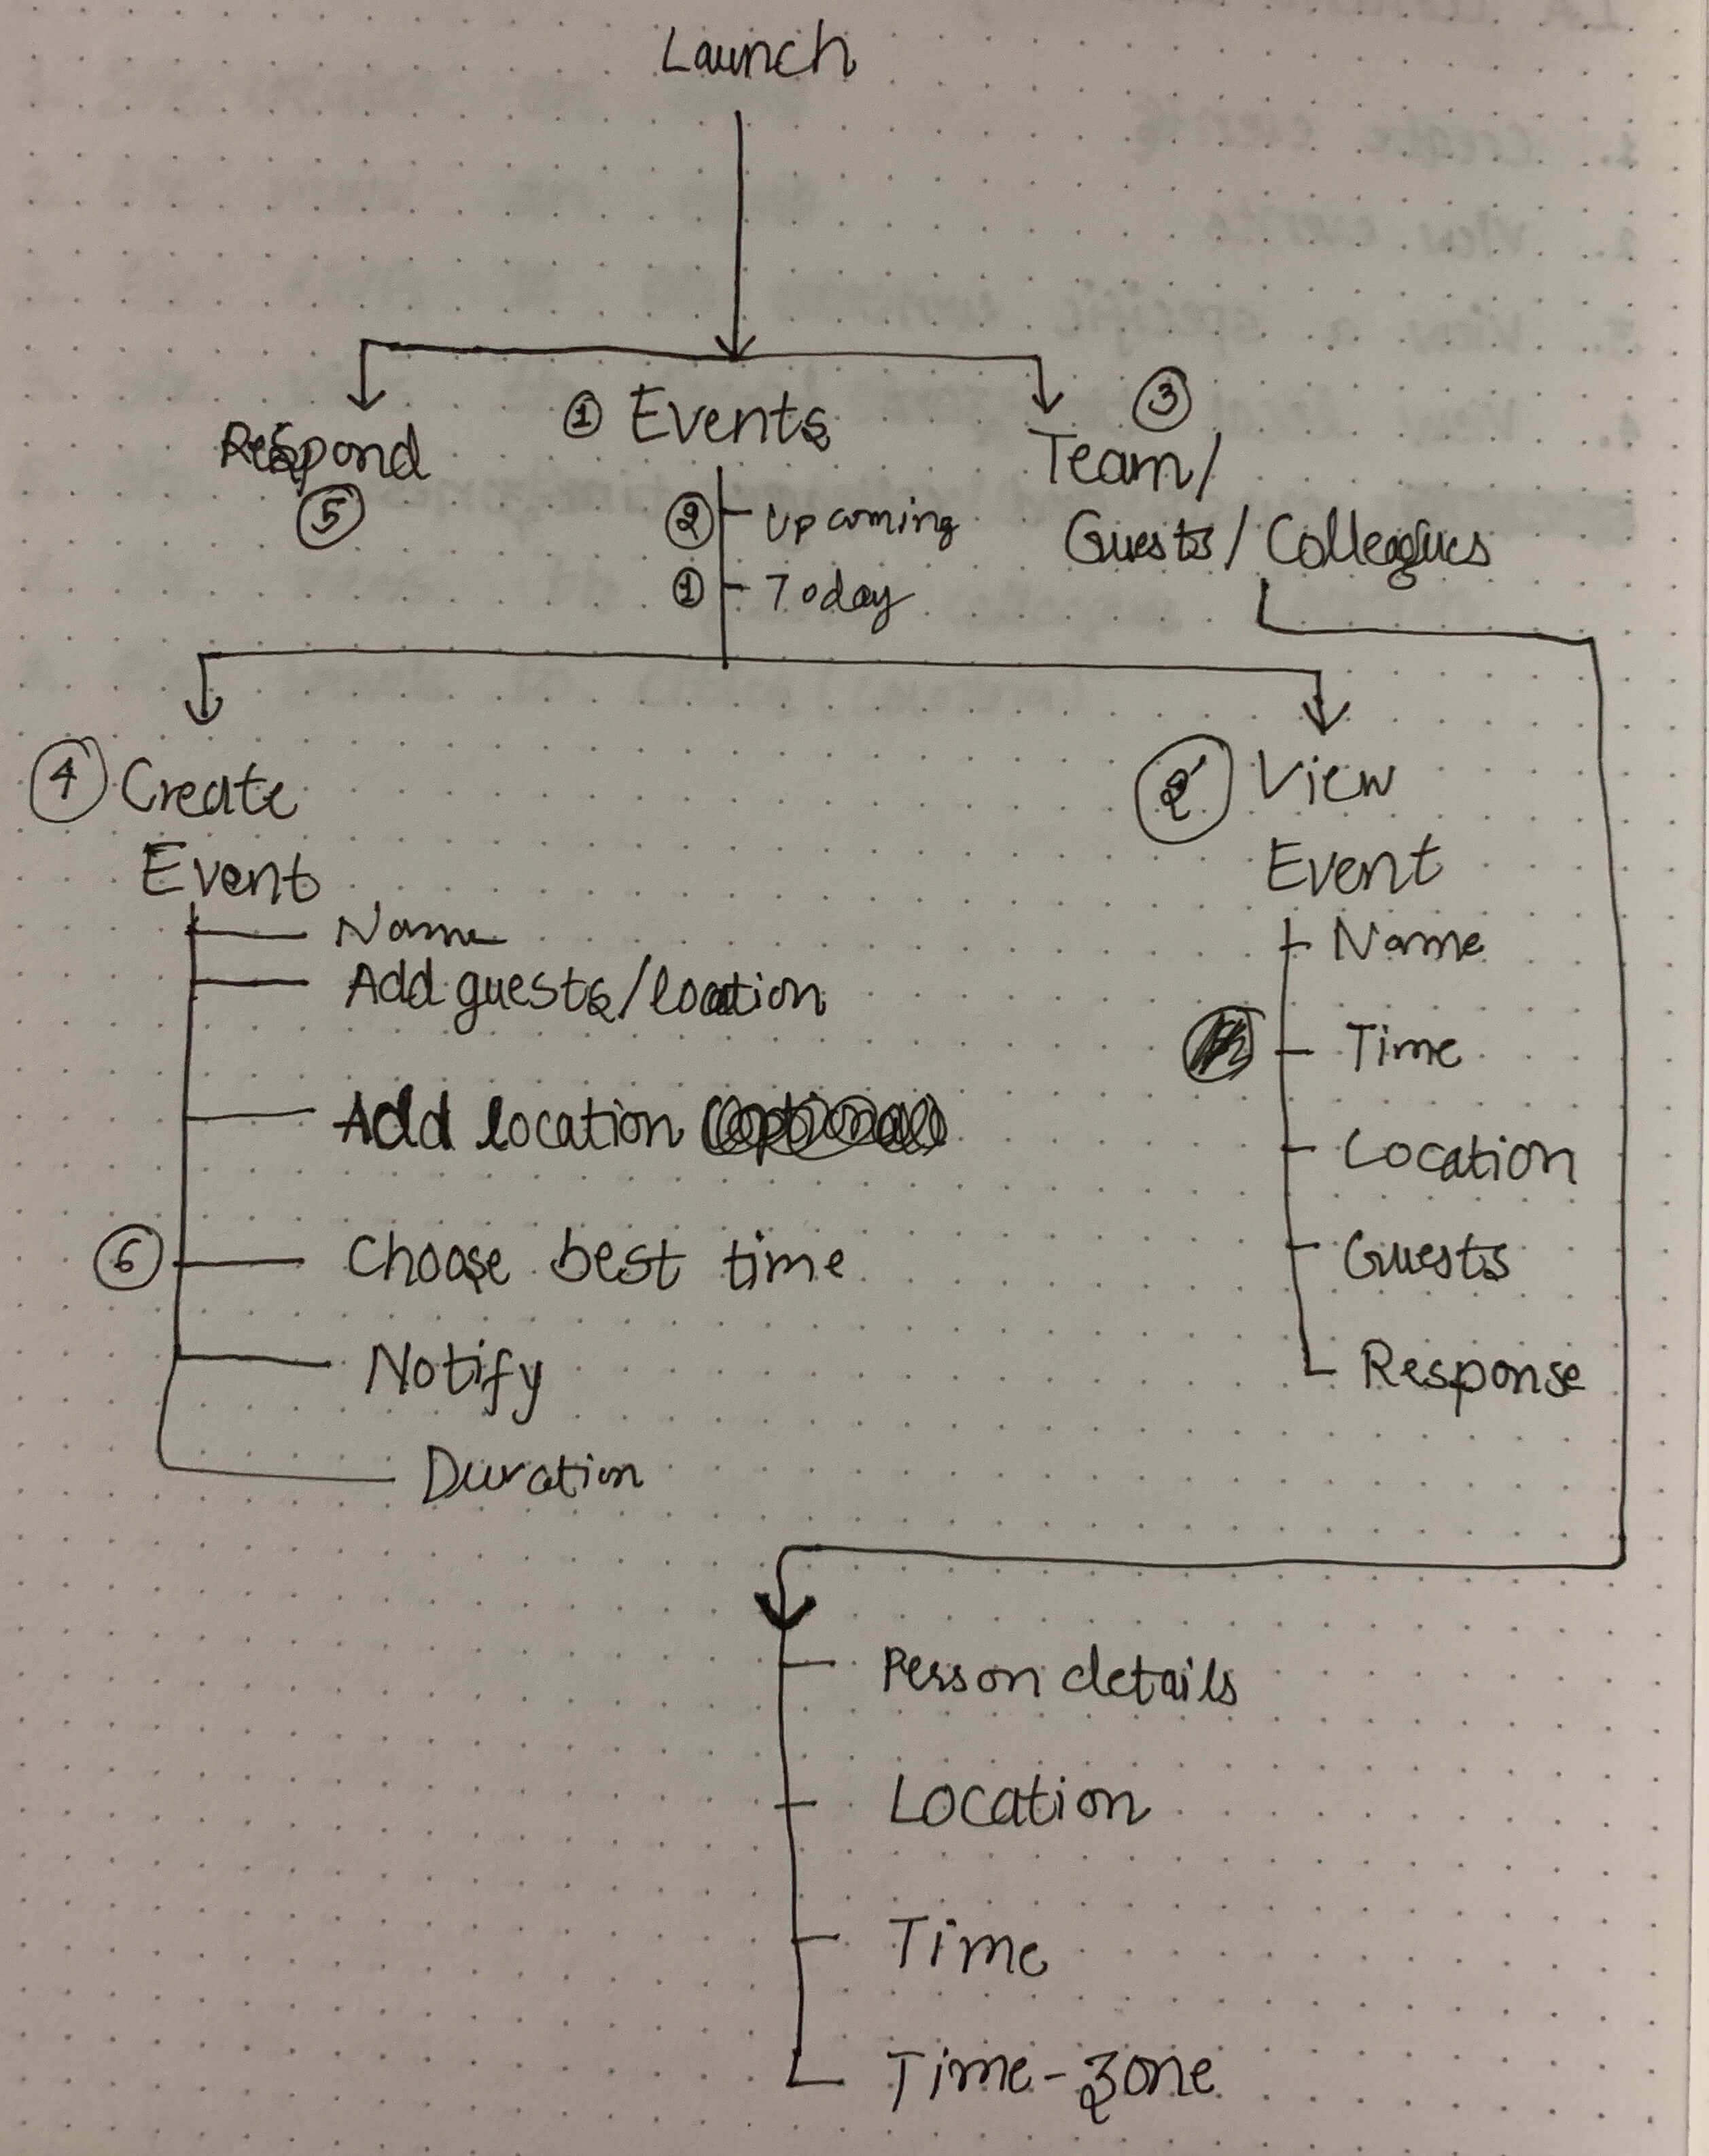 Launch
① Events
③
Respond
⑤
Team/
Guests/Colleagues
② Upcoming
① Today
④ Create
Event
Name
Add guests/location
Add location
⑥ Choose best time
Notify
Duration
View
Event
Name
Time
Location
Guests
Response
Person details
Location
Time
Time-zone